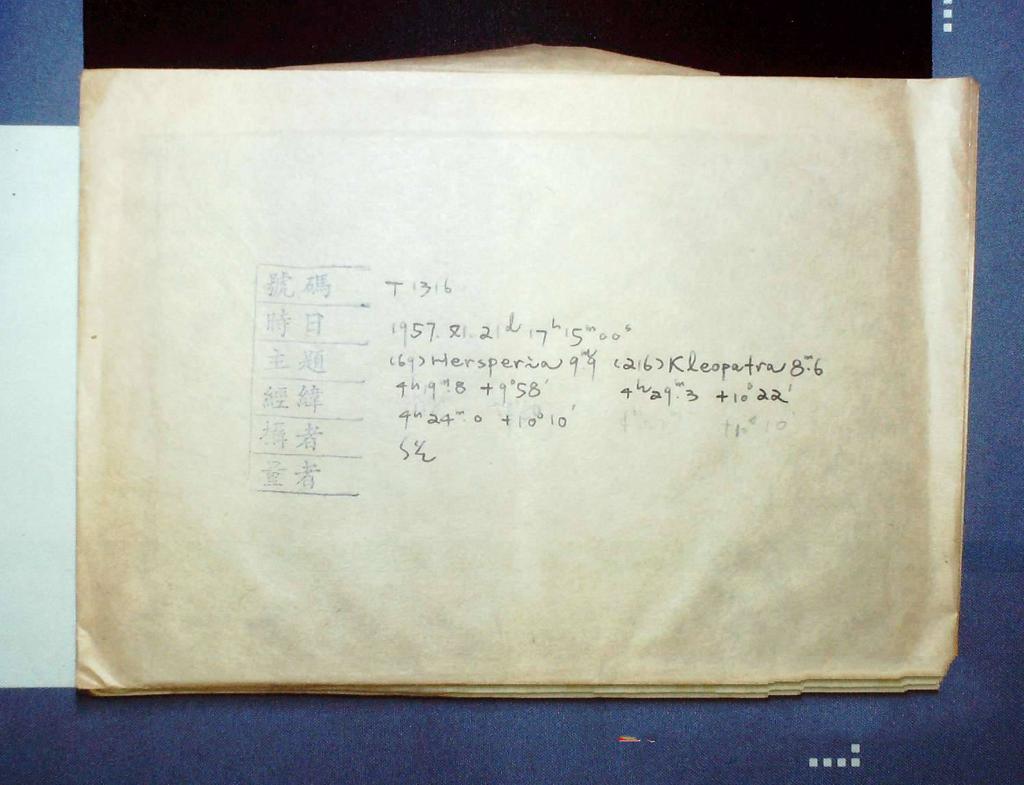 號碼 T 1316
時日 1957. XI. 21d 17h 15m 00s
主題 (69) Hersperia 9m.9 (216) Kleopatra 8m.6
經緯 4h 19m.8 +9°58' 4h 29m.3 +10°22'
攝者 4h 24m.0 +10°10' +10°10'
量者